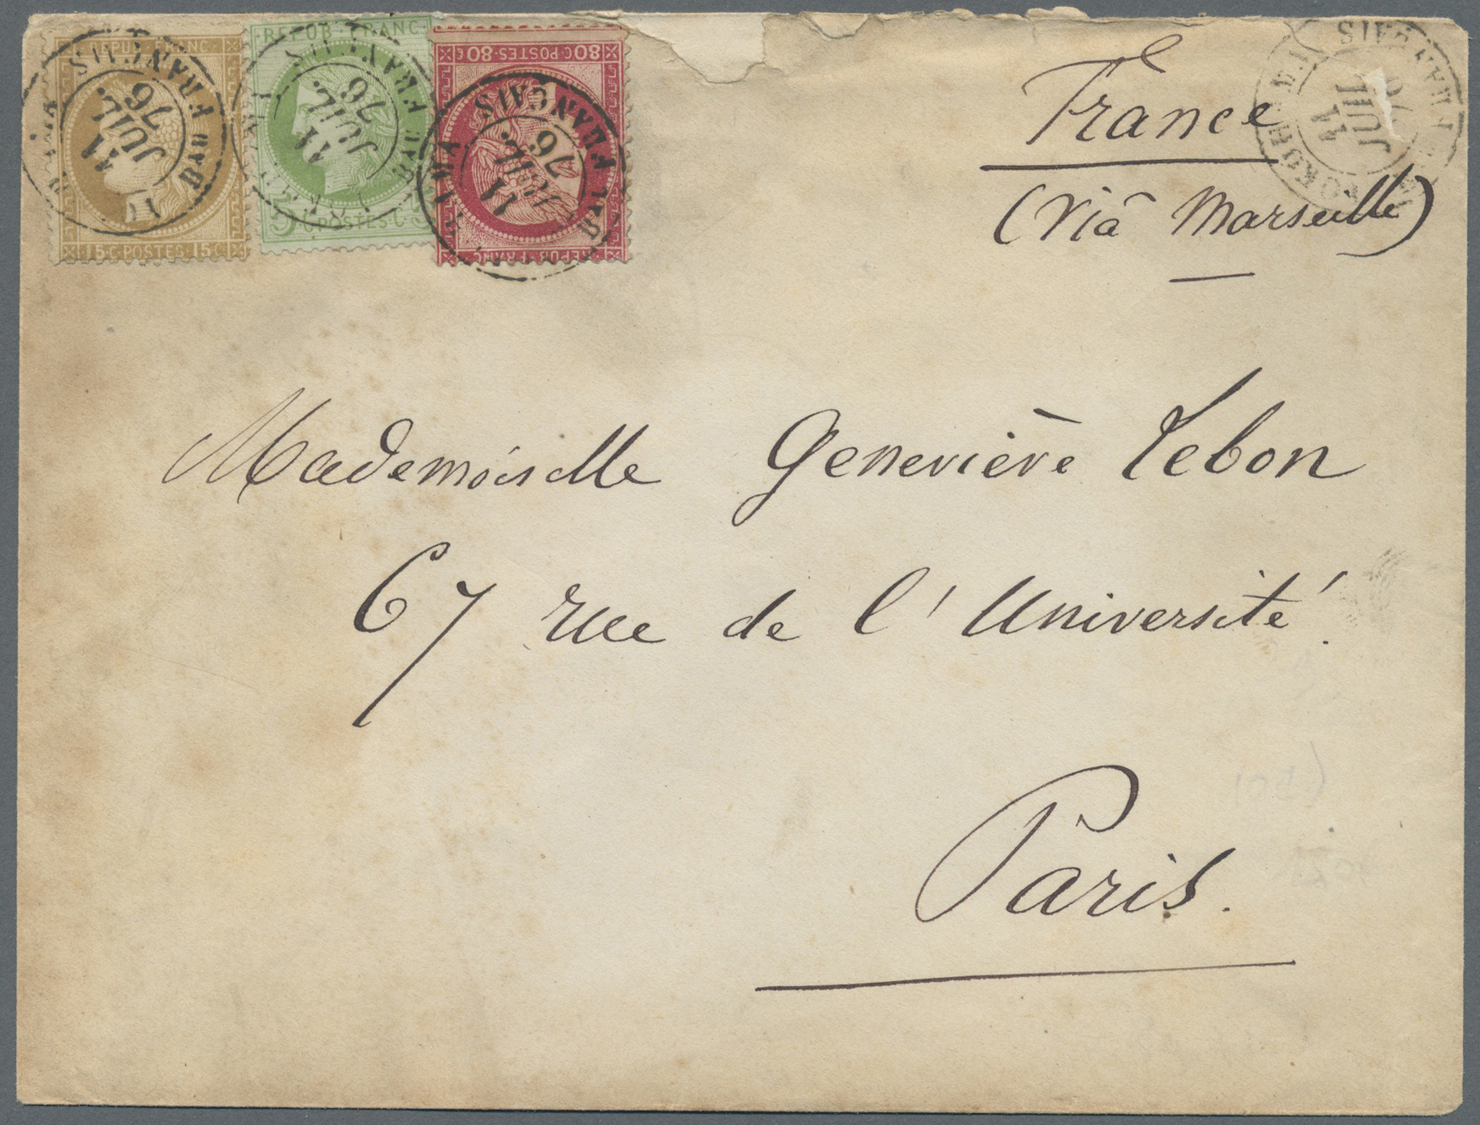 REPUB · FRANC
15 C · POSTES · 15 C
REPUB · FRANC
5 C · POSTES · 5 C
80 C · POSTES · 80 C
REPUB · FRANC
BAU FRANCAIS
11
JUIL.
76
BAU FRANCAIS
11
JUIL.
76
BAU FRANCAIS
11
JUIL.
76
YOKOHAMA BAU FRANCAIS
11
JUIL.
76
France
(Viâ Marseille)
Mademoiselle Geneviève Lebon
67 rue de l'Université.
Paris.